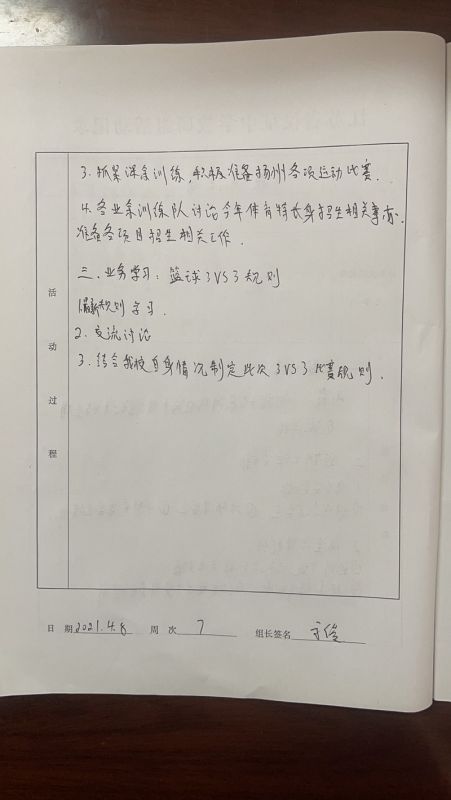 3. 抓紧课余训练，积极准备扬州各项运动比赛．
4. 各业余训练队讨论今年体育特长生招生相关事宜．
准备各项目招生相关工作．
三．业务学习：篮球3VS3规则
1.最新规则学习．
2. 交流讨论
3. 结合我校自身情况制定此次3VS3比赛规则．
活动过程
日 期 2021.4.8 周 次 7 组长签名